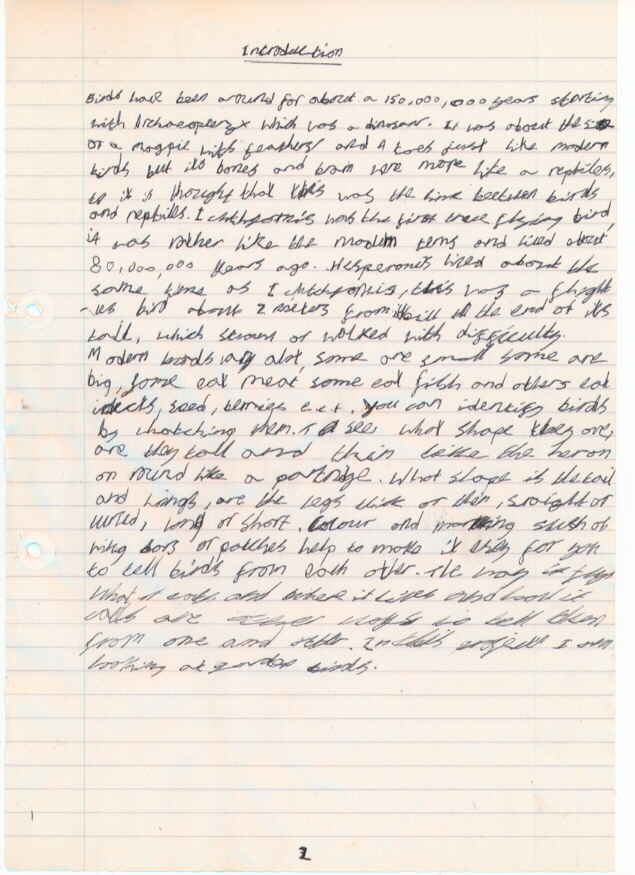 Introduction
Birds have been around for about a 150,000,000 years starting
with Archaeopteryx which was a dinosaur. It was about the size
of a magpie with feathers and 4 toes just like modern
birds but its bones and brain were more like a reptiles,
so it is thought that this was the link between birds
and reptiles. Ichthyornis was the first true flying bird,
it was rather like the modern terns and lived about
80,000,000 years ago. Hesperornis lived about the
same time as Ichthyornis, this was a flight
-less bird about 2 meters from its bill to the end of its
tail, which swam or walked with difficulty.
Modern birds vary alot, some are small some are
big, some eat meat some eat fish and others eat
insects, seed, berries e.c.t. you can identify birds
by watching them. To see what shape they are,
are they tall and thin like the heron
or round like a partridge. What shape is the tail
and wings, are the legs thick or thin, straight or
curved, long or short. Colour and marking such of
wing bars or patches help to make it easy for you
to tell birds from each other. The way it flys
what it eats and where it lives and how it
calls are ways to tell them
from one and other. In this project I am
looking at garden birds.
2